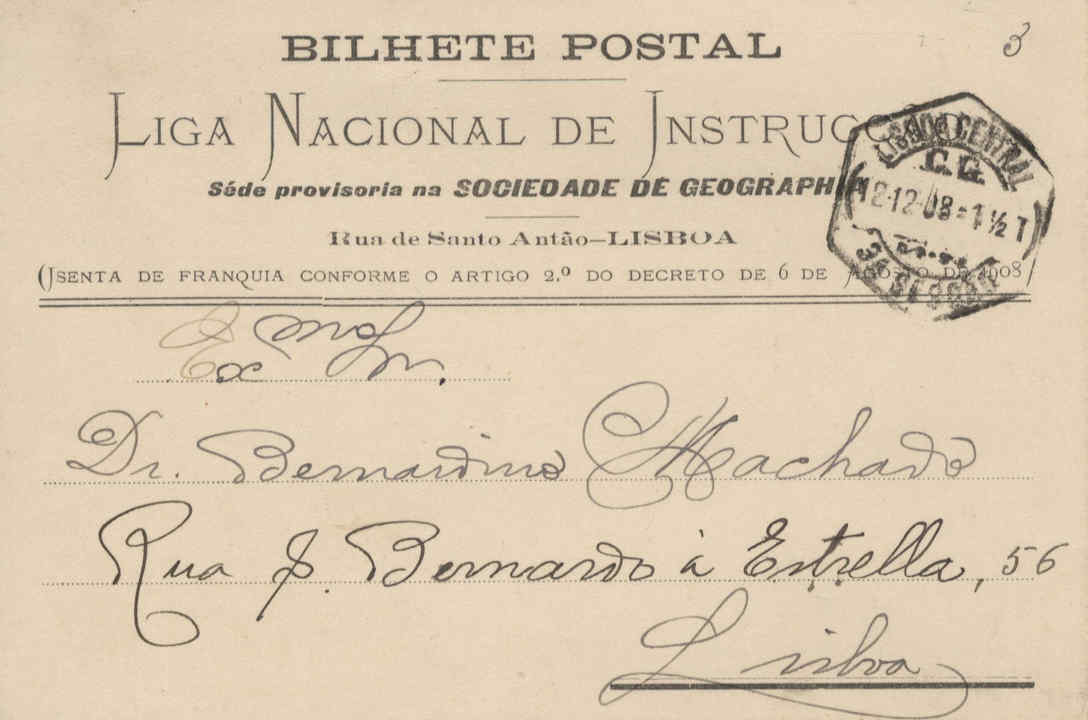 BILHETE POSTAL
3
LIGA NACIONAL DE INSTRUCÇÃO
Séde provisoria na SOCIEDADE DE GEOGRAPHIA
Rua de Santo Antão—LISBOA
(ISENTA DE FRANQUIA CONFORME O ARTIGO 2.º DO DECRETO DE 6 DE AGOSTO DE 1908)
LISBOA CENTRAL
C. G.
12-12-08=1 ½ T
3ª SECÇÃO
Ex mo Sr.
Dr. Bernardino Machado
Rua S. Bernardo à Estrella, 56
Lisboa